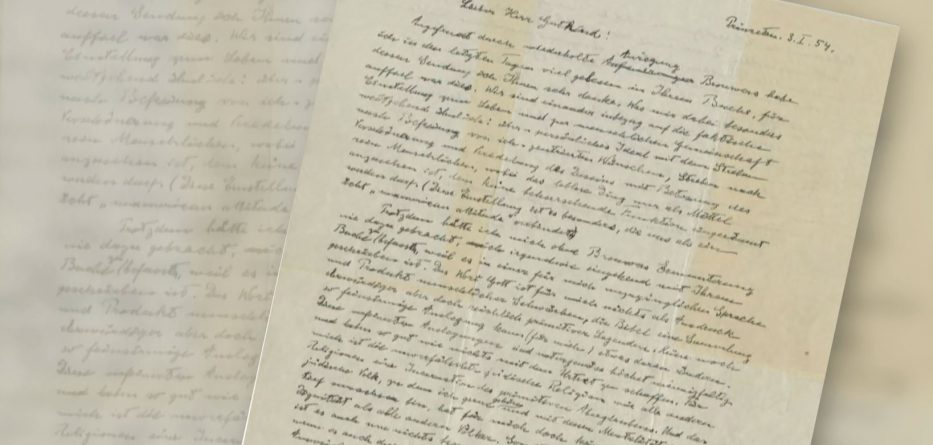 Princeton. 3. I. 54.
Lieber Herr Gutkind!
Angefeuert durch wiederholte Anregung Brouwers habe
ich in den letzten Tagen viel gelesen in Ihrem Buche, für
dessen Sendung ich Ihnen sehr danke. Was mir dabei besonders
auffiel war dies. Wir sind einander inbezug auf die faktische
Einstellung zum Leben und zur menschlichen Gemeinschaft
weitgehend ähnlich: über-persönliches Ideal mit dem Streben
nach Befreiung von ich-zentrierten Wünschen, Streben nach
Verschönerung und Veredelung des Daseins mit Betonung des
rein Menschlichen, wobei das leblose Ding nur als Mittel
anzusehen ist, dem keine beherrschende Funktion eingeräumt
werden darf. (Diese Einstellung ist es besonders, die uns als ein
echt „unamerican attitude" verbindet)
Trotzdem hätte ich mich ohne Brouwers Ermunterung
nie dazu gebracht, mich irgendwie eingehend mit Ihrem
Buche zu befassen, weil es in einer für mich unzugänglichen Sprache
geschrieben ist. Das Wort Gott ist für mich nichts als Ausdruck
und Produkt menschlicher Schwächen, die Bibel eine Sammlung
ehrwürdiger aber doch reichlich primitiver Legenden. Keine noch
so feinsinnige Auslegung kann (für mich) etwas daran ändern.
Diese verfeinerten Auslegungen sind naturgemäss höchst mannigfaltig
und haben so gut wie nichts mit dem Urtext zu schaffen. Für
mich ist die unverfälschte jüdische Religion wie alle anderen
Religionen eine Incarnation des primitiven Aberglaubens. Und das
jüdische Volk, zu dem ich gerne gehöre und mit dessen Mentalität ich
tief verwachsen bin, hat für mich doch
Dignität als alle anderen Völker.
ist es auch um nichts